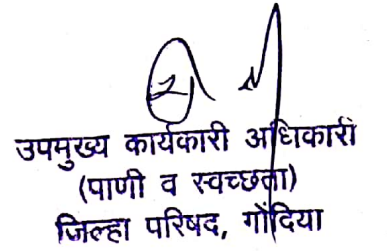 उपमुख्य कार्यकारी अधिकारी
(पाणी व स्वच्छता)
जिल्हा परिषद, गोंदिया